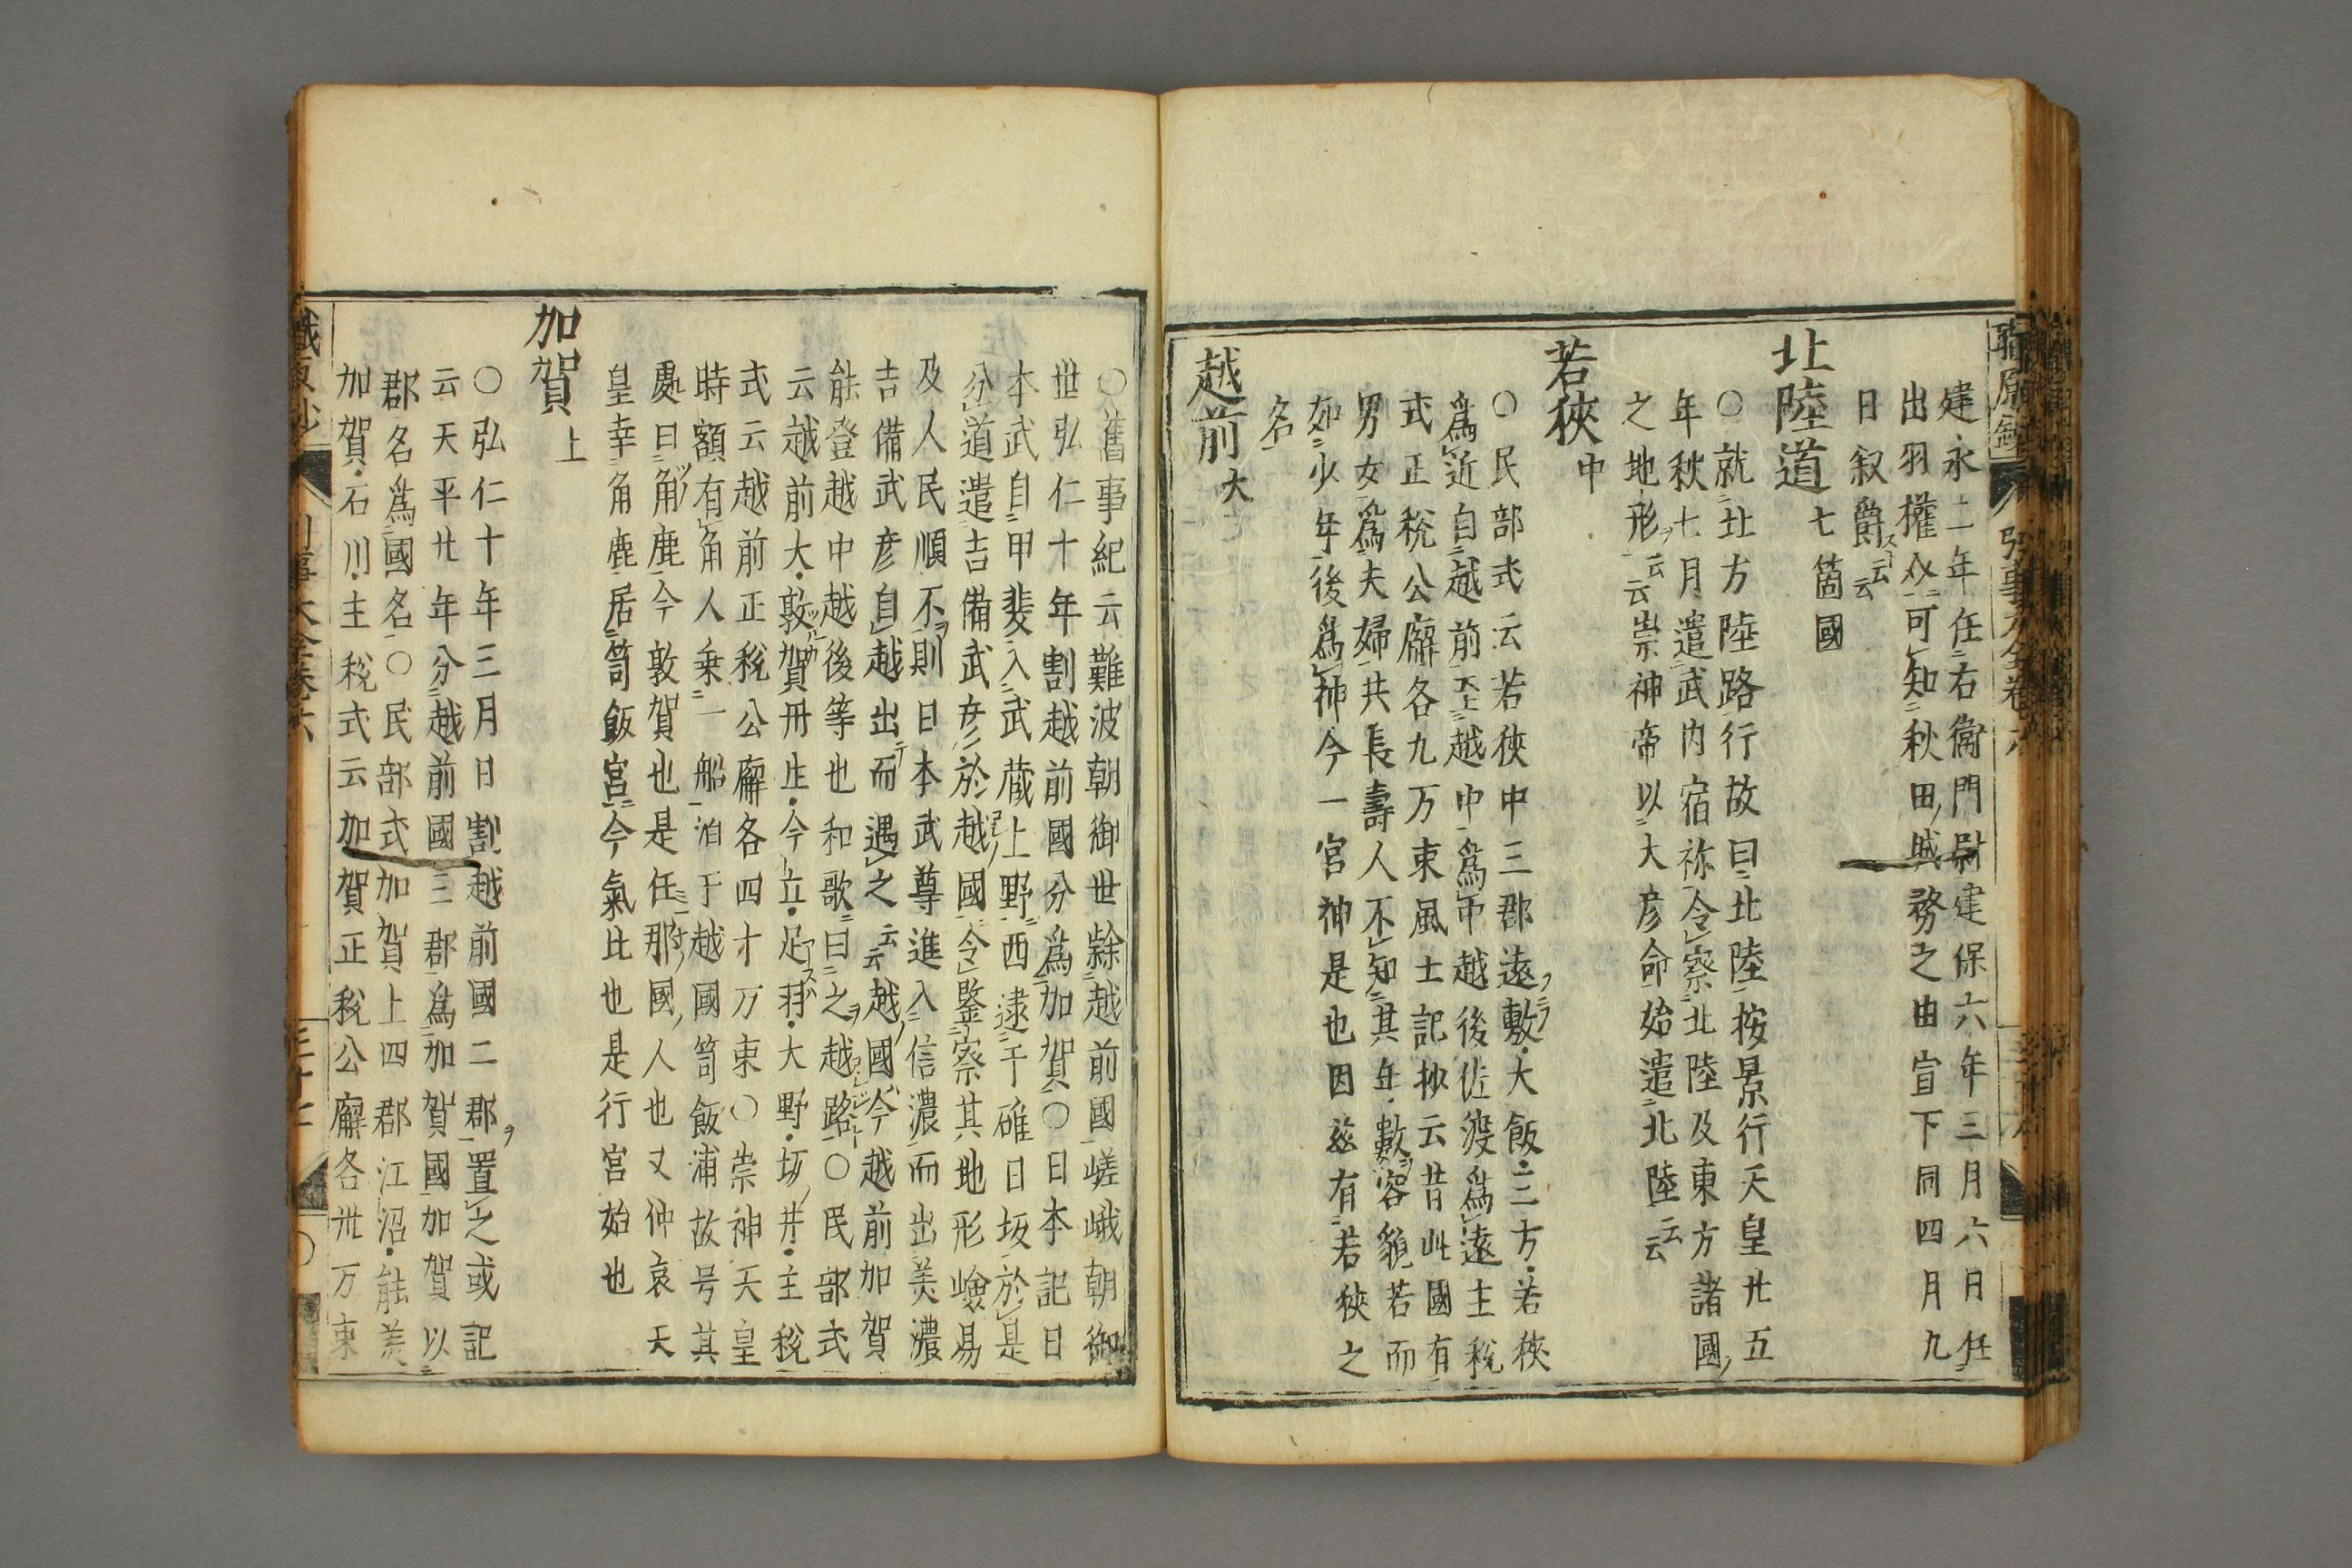 建永二年任右衞門尉建保六年三月六日任
出羽權介可知秋田城務之由宣下同四月九
日叙爵云云
北陸道七箇國
○就北方陸路行故曰北陸按景行天皇廿五
年秋七月遣武内宿祢令察北陸及東方諸國
之地形云云崇神帝以大彦命始遣北陸云云
若狹中
○民部式云若狹中三郡遠敷大飯三方若狹
爲近自越前至越中爲中越後佐渡爲遠主税
式正税公廨各九万束風土記抄云昔此國有
男女爲夫婦共長壽人不知其年數容貌若而
如少年後爲神今一宮神是也因茲有若狹之
名
越前大
○舊事紀云難波朝御世隸越前國嵯峨朝御
世弘仁十年割越前國分爲加賀○日本記日
本武自甲斐入武藏上野西逮于碓日坂於是
分道遣吉備武彦於越國令鑒察其地形嶮易
及人民順不則日本武尊進入信濃而出美濃
吉備武彦自越出而遇之云云越國今越前加賀
能登越中越後等也和歌曰之越路○民部式
云越前大敦賀丹生今立足羽大野坂井主税
式云越前正税公廨各四十万束○崇神天皇
時額有角人乗一船泊于越國笥飯浦故号其
處曰角鹿今敦賀也是任那國人也又仲哀天
皇幸角鹿居笥飯宮今氣比也是行宮始也
加賀上
○弘仁十年三月日割越前國二郡置之或記
云天平廿年分越前國三郡爲加賀國加賀以
郡名爲國名○民部式加賀上四郡江沼能美
加賀石川主税式云加賀正税公廨各卅万束